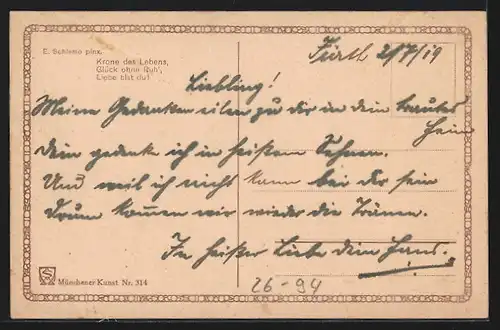 E. Schlemo pinx.
Krone des Lebens,
Glück ohne Ruh',
Liebe bist du!
Fürth 2/7/19
Liebling!
Meine Gedanken eilen zu dir in dein trautes
Heim
Dein gedenke ich in heißem Sehnen.
Und weil ich nicht kann bei dir sein
Drum kommen mir wieder die Tränen.
In heißer Liebe dein Hans.
Münchener Kunst Nr. 314
26-94